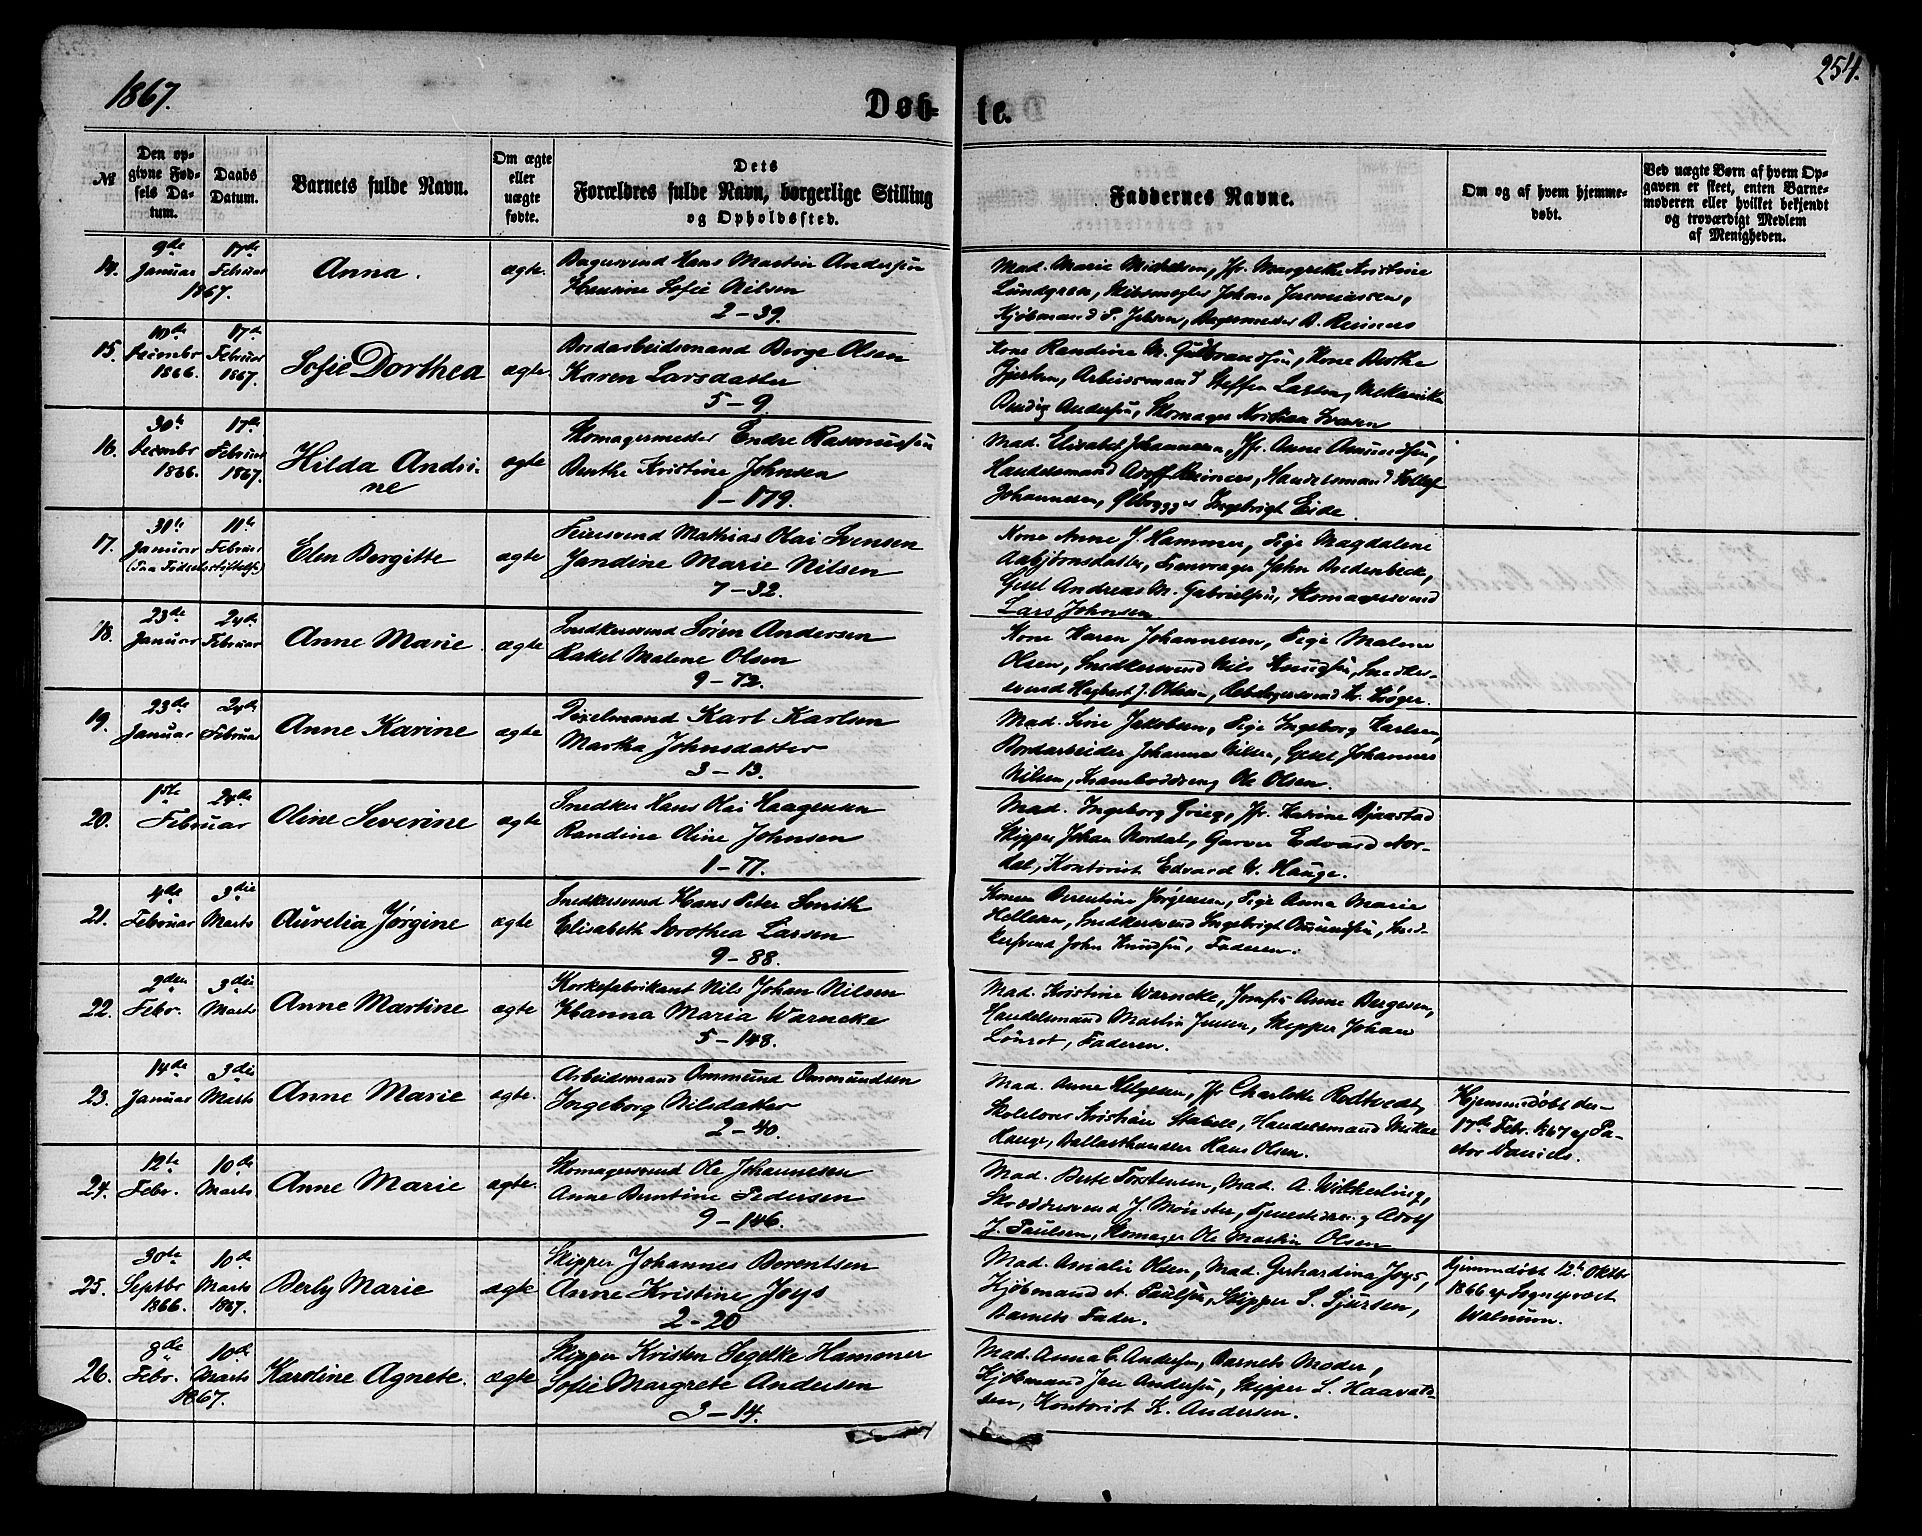 1867.
Døb- te.
254.
№
Den op-
givne Fød-
sels Da-
tum.
Daabs
Datum.
Barnets fulde Navn.
Om ægte
eller
uægte
fødte.
Dets
Forældres fulde Navn, borgerlige Stilling
og Opholdssted.
Faddernes Navne.
Om og af hvem hjemme-
døbt.
Ved uægte Børn af hvem Op-
gaven er skeet, enten Barne-
moderen eller hvilket bekjendt
og troværdigt Medlem
af Menigheden.
14.
9de
Januar
17de
Februar
1867.
Anna.
ægte
Bagersvend Hans Martin Andersen
Severine Sofie Nilsen
2-39.
Mad. Marie Michelsen, Jfr. Margrethe Kristine
Lundgren, Johan Jeremiassen,
Kjøbmand P. Jebsen, Bagermester B. Reimers
15.
10de
Decembr
1866.
17de
Februar
1867.
Sofie Dorthea
ægte
Bordarbeidsmand Børge Olsen
Karen Larsdatter
5-9.
Kone Randine M. Gulbrandsen, Kone Berthe
Arbeidsmand Steffen Larsen, Mekanik
Andersen, Skomager Kristian Iversen
16.
30te
Decembr
1866.
17de
Februar
1867.
Hilda Andri-
ne
ægte
Skomagermester Endre Rasmussen
Berthe Kristine Johnsen
1-179.
Mad. Elisabet Johannesen, Jfr. Anne Amundsen,
Handelsmand Adolf Reimers, Handelsmand
Johannesen, Ølbrygger Ingebrigt Eide.
17.
31te
Januar
17de
Februar
(paa Fødselsstiftelsen)
Elen Bergitte
ægte
Feiersvend Mathias Olai Svensen
Jandine Marie Nilsen
7-32.
Kone Anne J. Hammer, Pige Magdalene
Asbjørnsdatter, John Bredenbeck,
Gesel Andreas M. Gabrielsen, Skomagersvend
Lars Johnsen
18.
23de
Januar
24de
Februar
Anne Marie
ægte
Snedkersvend Søren Andersen
Rakel Malene Olsen
9-72.
Kone Karen Johannesen, Pige Malene
Olsen, Snedkersvend Nils Knudsen, Snedker-
svend Hagbert J. Olsen, Rebslagersvend Kr. Krøger.
19.
23de
Januar
24de
Februar
Anne Karine
ægte
Dixelmand Karl Karlsen
Martha Johnsdatter
3-13.
Mad. Jakobsen, Pige Ingeborg Karlsen,
Bordarbeider Johannes Nilsen, Gesel Johannes
Nilsen, Kramboddreng Ole Olsen.
20.
1ste
24de
Februar
Oline Severine
ægte
Snedker Hans Olai Haagensen
Randine Oline Johnsen
1-77.
Mad. Ingeborg Grieg, Jfr. Katrine Bjaastad
Skipper Johan Nordal, Garver Edvard Nor-
dal, Kontorist Edvard W. Hauge.
21.
4de
Februar
3die
Marts
Aurelia Jørgine
ægte
Snedkersvend Hans Peter Smith
Elisabeth Dorothea Larsen
9-88.
Konen Berentine Jørgensen, Pige Anna Marie
Hellesen, Snedkersvend Ingebrigt Omundsen, Sned-
kersvend John Knudsen, Faderen.
22.
2den
Febr.
3die
Marts
Anne Martine
ægte
Korkefabrikant Nils Johan Nilsen
Hanna Maria Warncke
5-148.
Mad. Kristine Warncke, Jomfru Anne Bergesen,
Handelsmand Martin Jensen, Skipper Johan
Faderen.
23.
14de
Januar
3die
Marts
Anne Marie
ægte.
Arbeidsmand Ommund Ommundsen
Ingeborg Nilsdatter
2-40.
Mad. Anne Helgesen, Jfr. Charlotte Rødtvedt,
Skolelærer Kristian Stabell, Handelsmand
Hauge, Ballasthandler Hans Olsen.
Hjemmedøbt den
17de Febr. 1867 af Pa-
stor Daniels.
24.
12te
Febr.
10de
Marts
Anne Marie
ægte.
Skomagersvend Ole Johannesen
Anne Bentine Pedersen
9-146.
Mad. Berte Torstensen, Mad. A. Wikherling,
Skræddersvend J. Mønster, Adolf
J. Paulsen, Skomager Ole Martin Olsen
25.
30te
Septbr
1866.
10de
Marts
1867.
Berly Marie
ægte
Skipper Johannes Berentsen
Anne Kristine Joys
2-20
Mad. Amalie Olsen, Mad. Gerhardina Joys,
Kjøbmand A. Paulsen, Skipper S. Sjursen,
Barnets Fader.
Hjemmedøbt 12te Oktbr
1866 af Sogneprest
Walnum.
26.
8de
Febr.
10de
Marts
1867.
Karoline Agnete.
ægte
Skipper Kristen Segelke Hammer
Sofie Margrete Andersen
3-14.
Mad. Anna C. Andersen, Barnets Moder,
Kjøbmand Jan Andersen, Skipper L. Haavald-
sen, Kontorist K. Andersen.